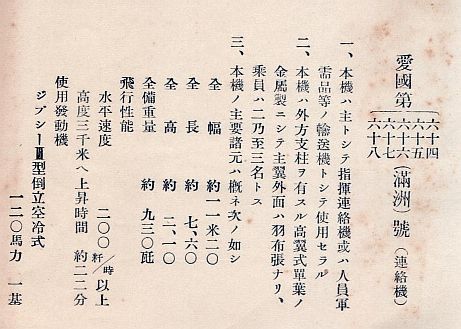 愛國第六十四 六十五 六十六 六十七 六十八(滿洲)號(連絡機)
一、本機ハ主トシテ指揮連絡機或ハ人員軍
需品等ノ輸送機トシテ使用セラル
二、本機ハ外方支柱ヲ有スル高翼式單葉ノ
金屬製ニシテ主翼外面ハ羽布張ナリ、
乘員ハ二乃至三名トス
三、本機ノ主要諸元ハ槪ネ次ノ如シ
全幅 約一一米二〇
全長 約七、六〇
全高 約二、一〇
全備重量 約九三〇瓩
飛行性能
水平速度 二〇〇粁/時以上
高度三千米ヘ上昇時間 約二二分
使用發動機
ジプシーⅢ型倒立空冷式
一二〇馬力 一基